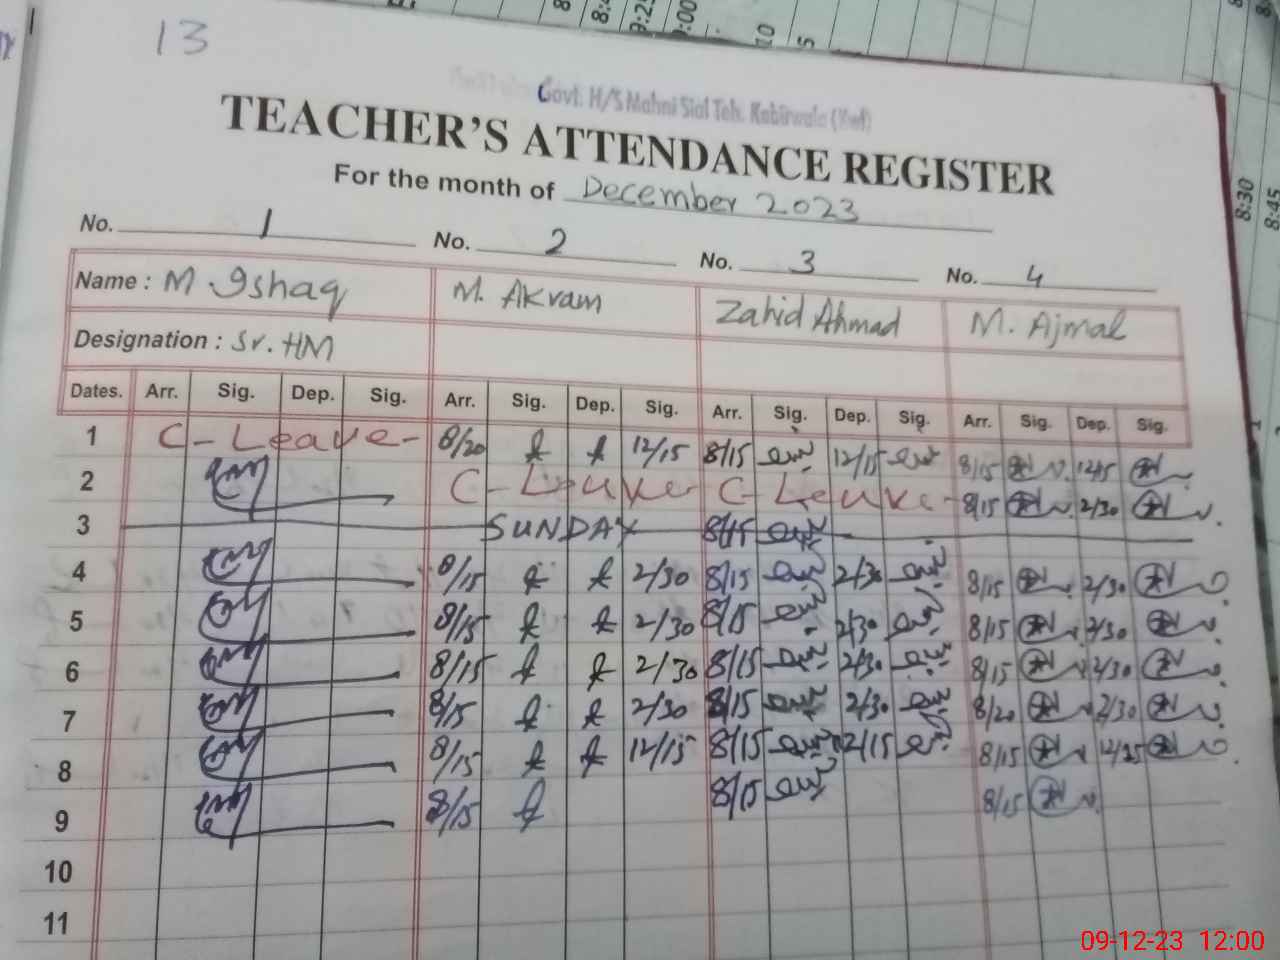 13
Govt. H/S Mahni Sial Teh. Kabirwala (Kwl)
TEACHER'S ATTENDANCE REGISTER
For the month of December 2023
No. 1 No. 2 No. 3 No. 4
Name : M Ishaq M. Akram Zahid Ahmad M. Ajmal
Designation : Sr. HM
Dates. Arr. Sig. Dep. Sig. Arr. Sig. Dep. Sig. Arr. Sig. Dep. Sig. Arr. Sig. Dep. Sig.
1 C-Leave- 8/20 12/15 8/15 12/15 8/15 12/15
2 C-Leave C-Leave- 8/15 2/30
3 SUNDAY 8/15
4 8/15 2/30 8/15 2/30 8/15 2/30
5 8/15 2/30 8/15 2/30 8/15 2/30
6 8/15 2/30 8/15 2/30 8/15 2/30
7 8/15 2/30 8/15 2/30 8/20 2/30
8 8/15 12/15 8/15 12/15 8/15
9 8/15 8/15 8/15
10
11
8:30
8:45
09-12-23 12:00